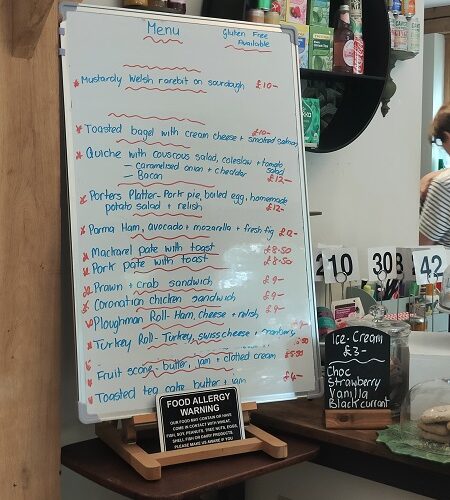 Menu
Gluten Free
Available
Mustardy Welsh rarebit on sourdough £10-
Toasted bagel with cream cheese + smoked salmon £10-
Quiche with couscous salad, coleslaw + tomato salad
- Caramelised onion + cheddar
- Bacon £12-
Porters Platter- Pork pie, boiled egg, homemade
potato salad + relish £12-
Parma Ham, avocado + mozarella + fresh fig £12-
Mackarel pate with toast £8-50
Pork pate with toast £8-50
Prawn + crab sandwich £9-
Coronation chicken sandwich £9-
Ploughman Roll- Ham, cheese + relish, £9-
Turkey Roll- Turkey, swiss cheese + cranberry
Fruit scone- butter, jam + clotted cream £5-50
Toasted tea cake butter + jam £4-
FOOD ALLERGY
WARNING
OUR FOOD MAY CONTAIN OR HAVE
COME IN CONTACT WITH WHEAT,
EGG, SOY, PEANUTS, TREE NUTS, EGGS,
SHELL FISH OR DAIRY PRODUCTS.
PLEASE MAKE US AWARE IF YOU
210
308
42
Ice-Cream
£3-
Choc
Strawberry
Vanilla
Blackcurrant